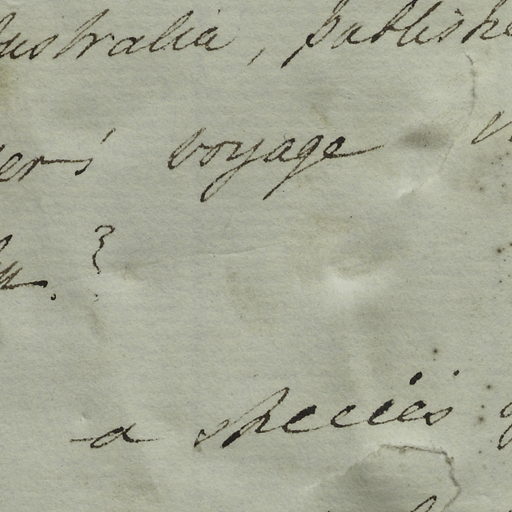 Australia, publishe
er's voyage
a species